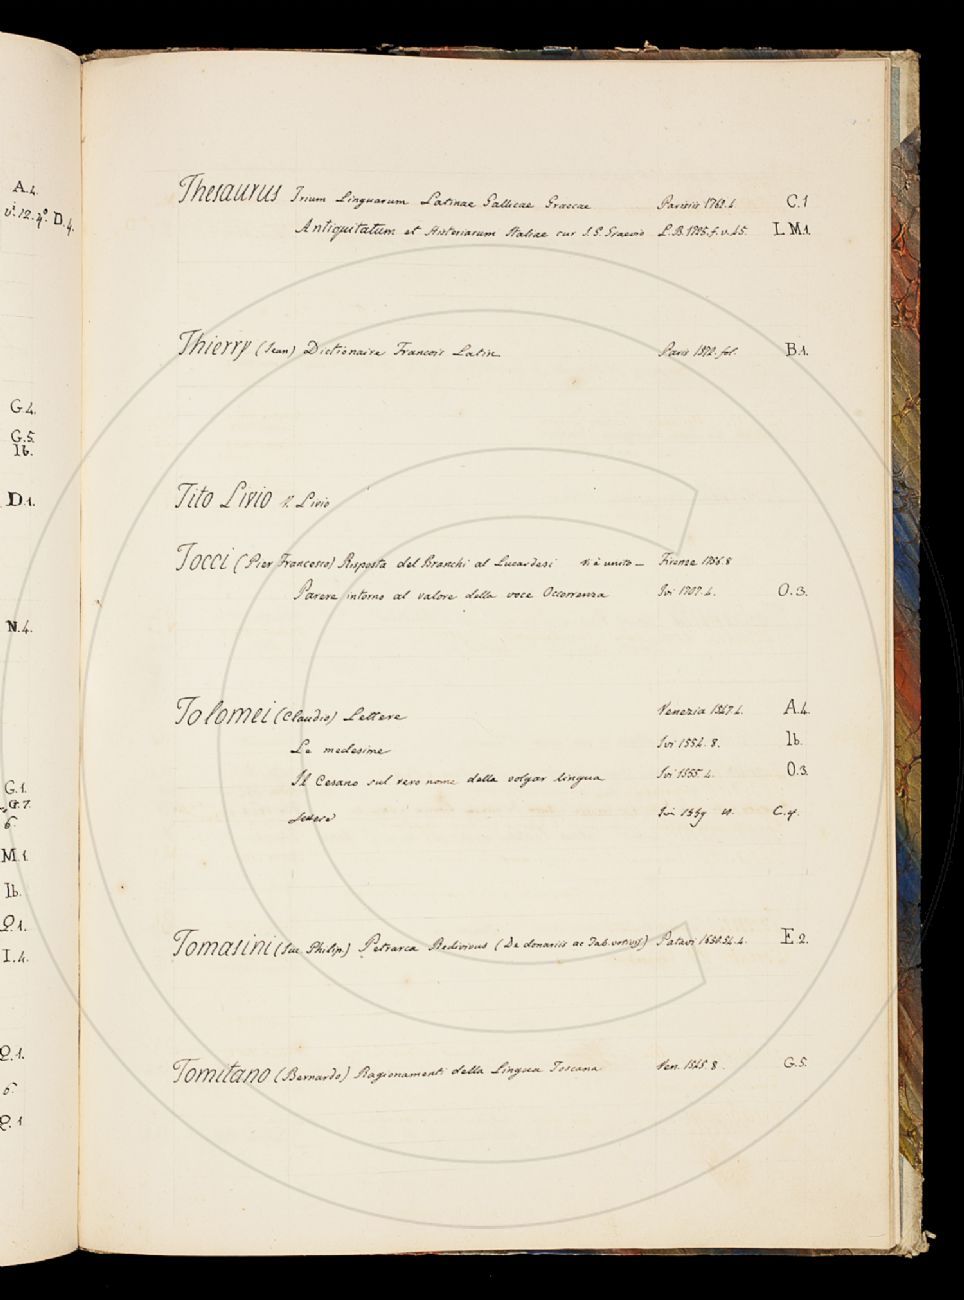 A.4.
vi. 12. 4°. D. 4.
G 4.
G. 5.
Ib.
D. 1.
N. 4.
G. 1.
G. 7.
6.
M. 1.
Ib.
Q. 1.
I. 4.
Q. 1.
6.
Q. 1
Thesaurus Trium Linguarum Latinae Gallicae Graecae Parisiis 4. C. 1
Antiquitatum et Historiarum Italiae cur J. G. Graevio L. B. f. v. 45. L M. 1.
Thierry (Jean) Dictionaire Francois Latin Paris fol. B. 1.
Tito Livio V. Livio
Tocci (Pier Francesco) Risposta del Branchi al Lucardesi Vi è unito — Firenze 8
Parere intorno al valore della voce Occorrenza Ivi 1707. 4. O. 3.
Tolomei (Claudio) Lettere Venezia 1547. 4. A. 4.
Le medesime Ivi 1554. 8. Ib.
Il Cesano sul vero nome della volgar lingua Ivi 1555. 4. O. 3.
Lettere Ivi C. 4.
Tomasini (Jac Philip.) Petrarca Redivivus (De donariis ac Tab. votivis) Patavi 4. E 2.
Tomitano (Bernardo) Ragionamenti della Lingua Toscana Ven. 1545. 8. G. 5.